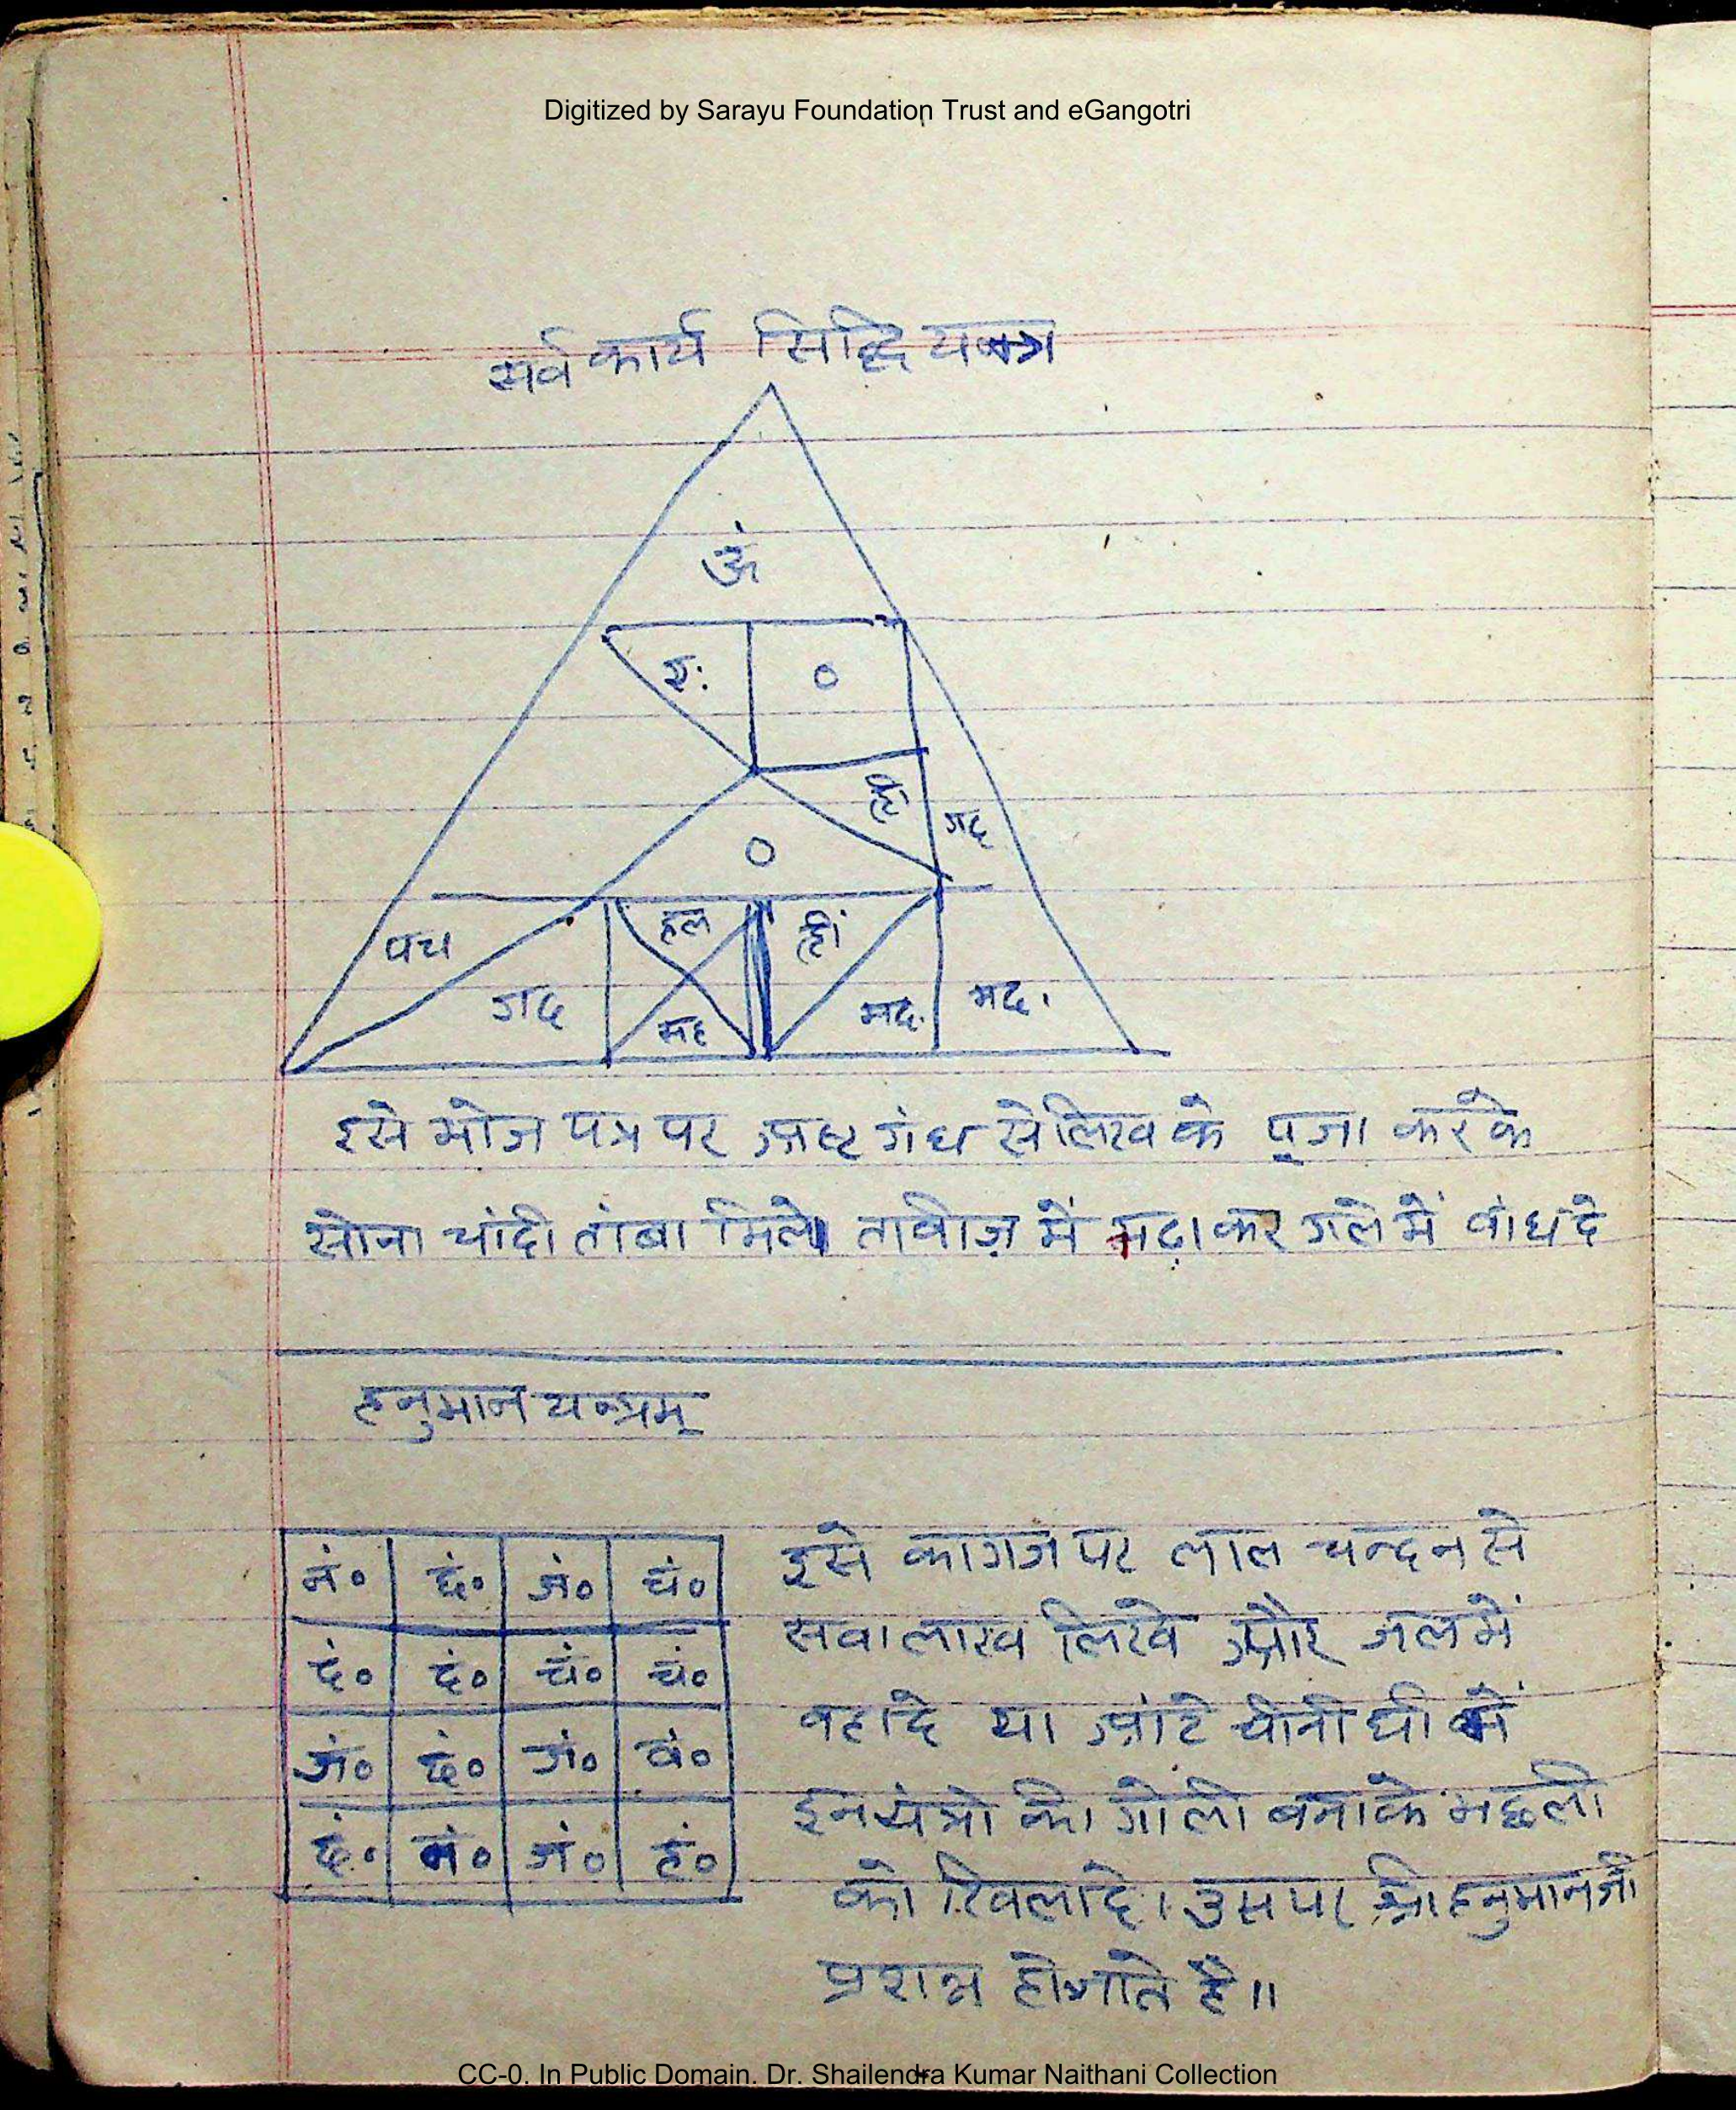 Digitized by Sarayu Foundation Trust and eGangotri
सर्व कार्य सिद्धि यन्त्र
ॐ
० 
ह्रीं गद्
०
पच हल ह्रीं
गद मद मद. मद.
इसे भोज पत्र पर अष्ट गंध से लिख के पूजा करके
सोना चांदी तांबा मिले तावीज़ में मढ़ा कर गले में वांध दे
हनुमान यन्त्रम्
नं० दं० जं० चं०
दं० दं० चं० चं०
जं० दं० जं० वं०
दं० नं० जं० हं०
इसे कागज पर लाल चन्दन से
सवा लाख लिखे और जल में
वहादे या आंटे चीनी घी में
इन यंत्रो की गोली बनाके मछली
को खिलादे। उस पर श्री हनुमान जी
प्रशन्न होजाते है॥
CC-0. In Public Domain. Dr. Shailendra Kumar Naithani Collection